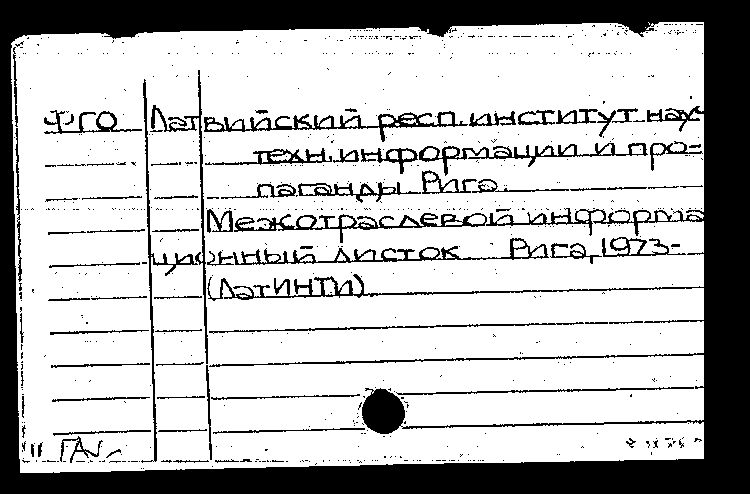 ФГО Латвийский респ. институт науч-
техн. информации и про-
паганды. Рига.
Межотраслевой информа
ционный листок. Рига, 1973-
(ЛатИНТИ).